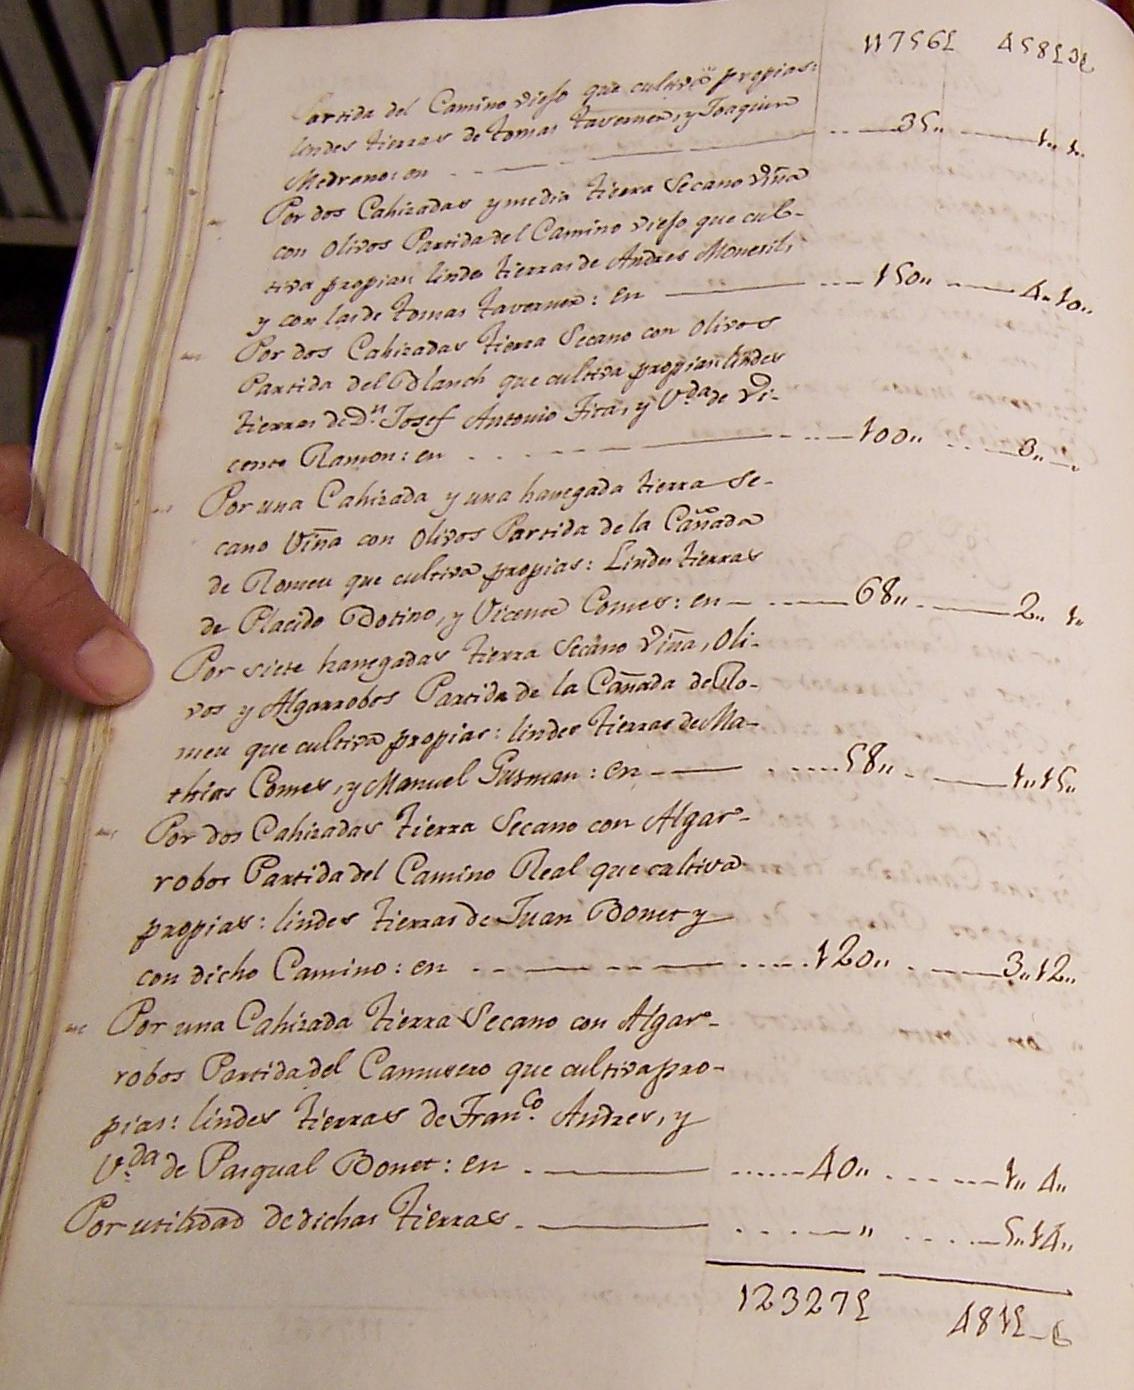 117561 4585£6
Partida del Camino viejo que cultiva propias:
lindes tierras de tomas taverner, y Joaquin
Medrano: en 35,, 1,, 1,,
Por dos Cahizadas y media tierra Secano viña
con Olivos Partida del Camino viejo que cul-
tiva propias linde tierras de Andres Monerils
y con las de tomas taverner: en 150,, 4,,10,,
Por dos Cahizadas tierra Secano con Olivos
Partida del Blanch que cultiva propias lindes
tierras de Dn. Josef Antonio Fita, y Vda. de Vi-
cente Ramon: en 100,, 3,,
Por una Cahizada y una hanegada tierra Se-
cano Viña con Olivos Partida de la Cañada
de Romeu que cultiva propias: Lindes tierras
de Placido Botino, y Vicente Comes: en 68,, 2,, 1,,
Por siete hanegadas tierra Secano viña, Oli-
vos y Algarrobos Partida de la Cañada de Ro-
meu que cultiva propias: lindes tierras de Ma-
thias Comes, y Manuel Gusman: en 58,, 1,,15,,
Por dos Cahizadas tierra Secano con Algar-
robos Partida del Camino Real que cultiva
propias: lindes tierras de Juan Bonet y
con dicho Camino: en 120,, 3,,12,,
Por una Cahizada tierra Secano con Algar-
robos Partida del Camusero que cultiva pro-
pias: lindes tierras de Franco. Andres, y
Vda. de Pasqual Bonet: en 40,, 1,, 4,,
Por utilidad de dichas tierras ,, 5,,14,,
12327£ 481£